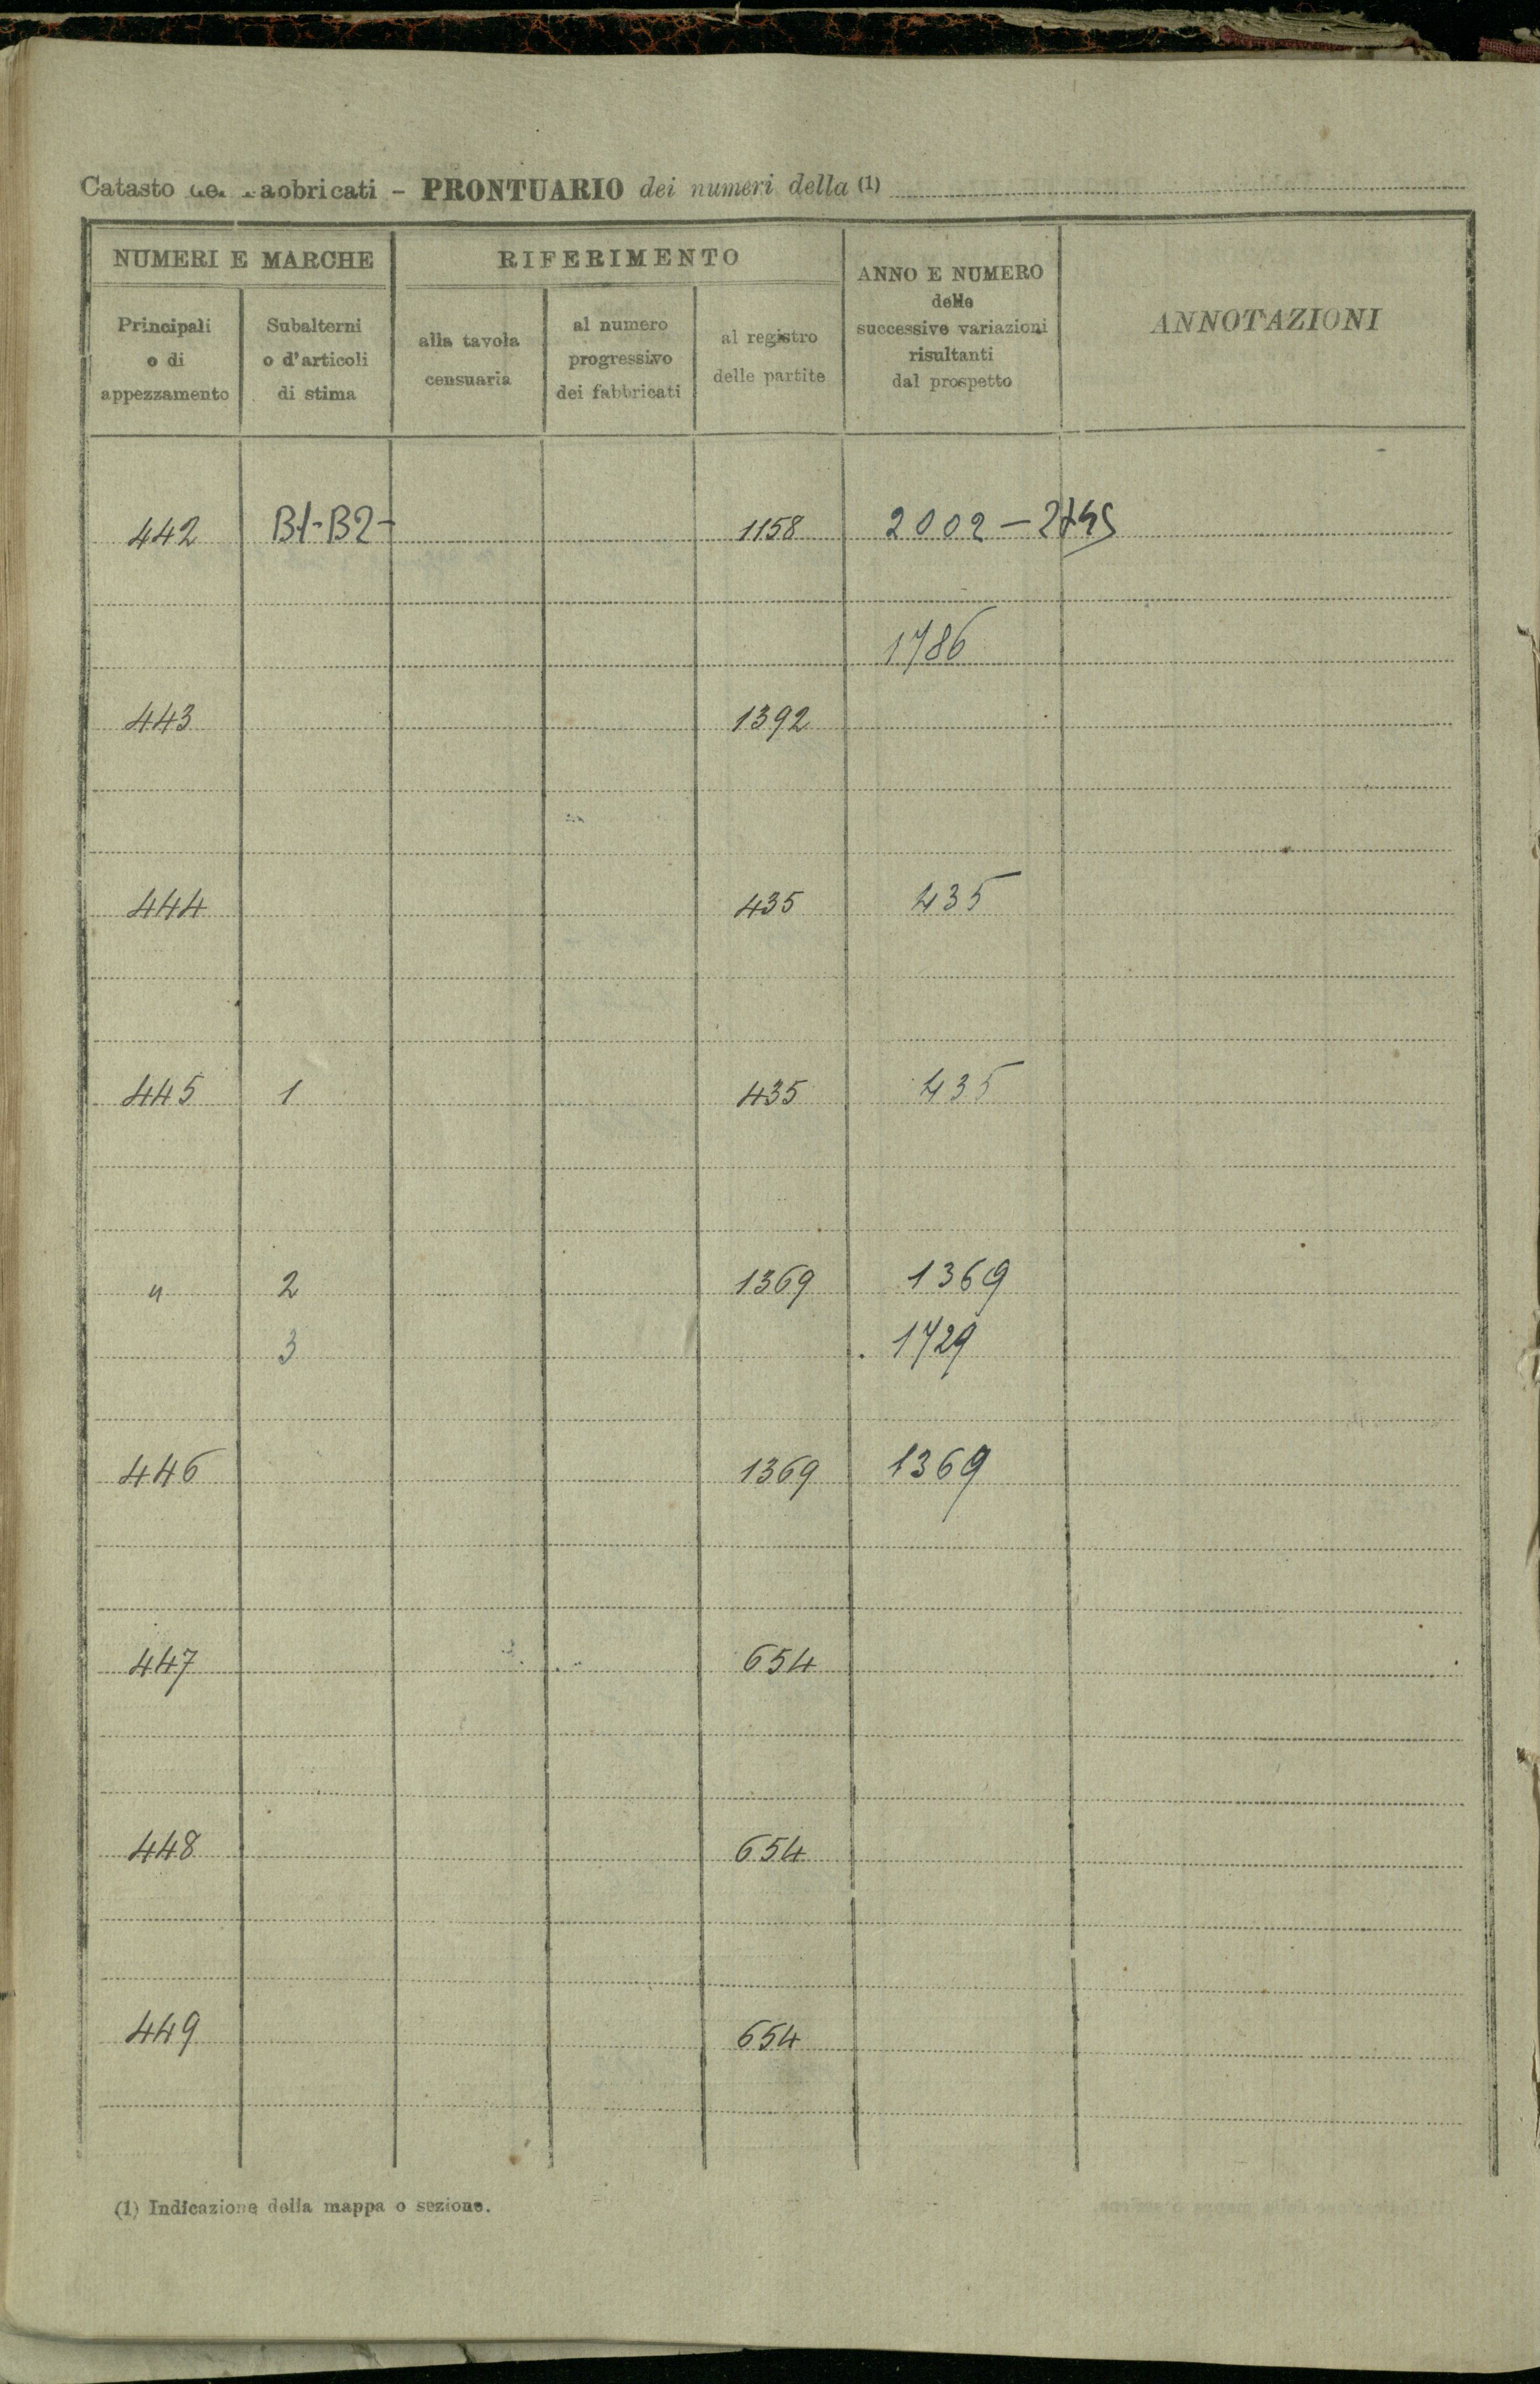 Catasto dei Fabbricati - PRONTUARIO dei numeri della (1)
NUMERI E MARCHE
RIFERIMENTO
ANNO E NUMERO
delle
successive variazioni
risultanti
dal prospetto
ANNOTAZIONI
Principali
o di
appezzamento
Subalterni
o d'articoli
di stima
alla tavola
censuaria
al numero
progressivo
dei fabbricati
al registro
delle partite
442 B1-B2- 1158 2002 -
1786
443 1392
444 435 435
445 1 435 435
" 2 1369 1369
3 1729
446 1369 1369
447 654
448 654
449 654
(1) Indicazione della mappa o sezione.